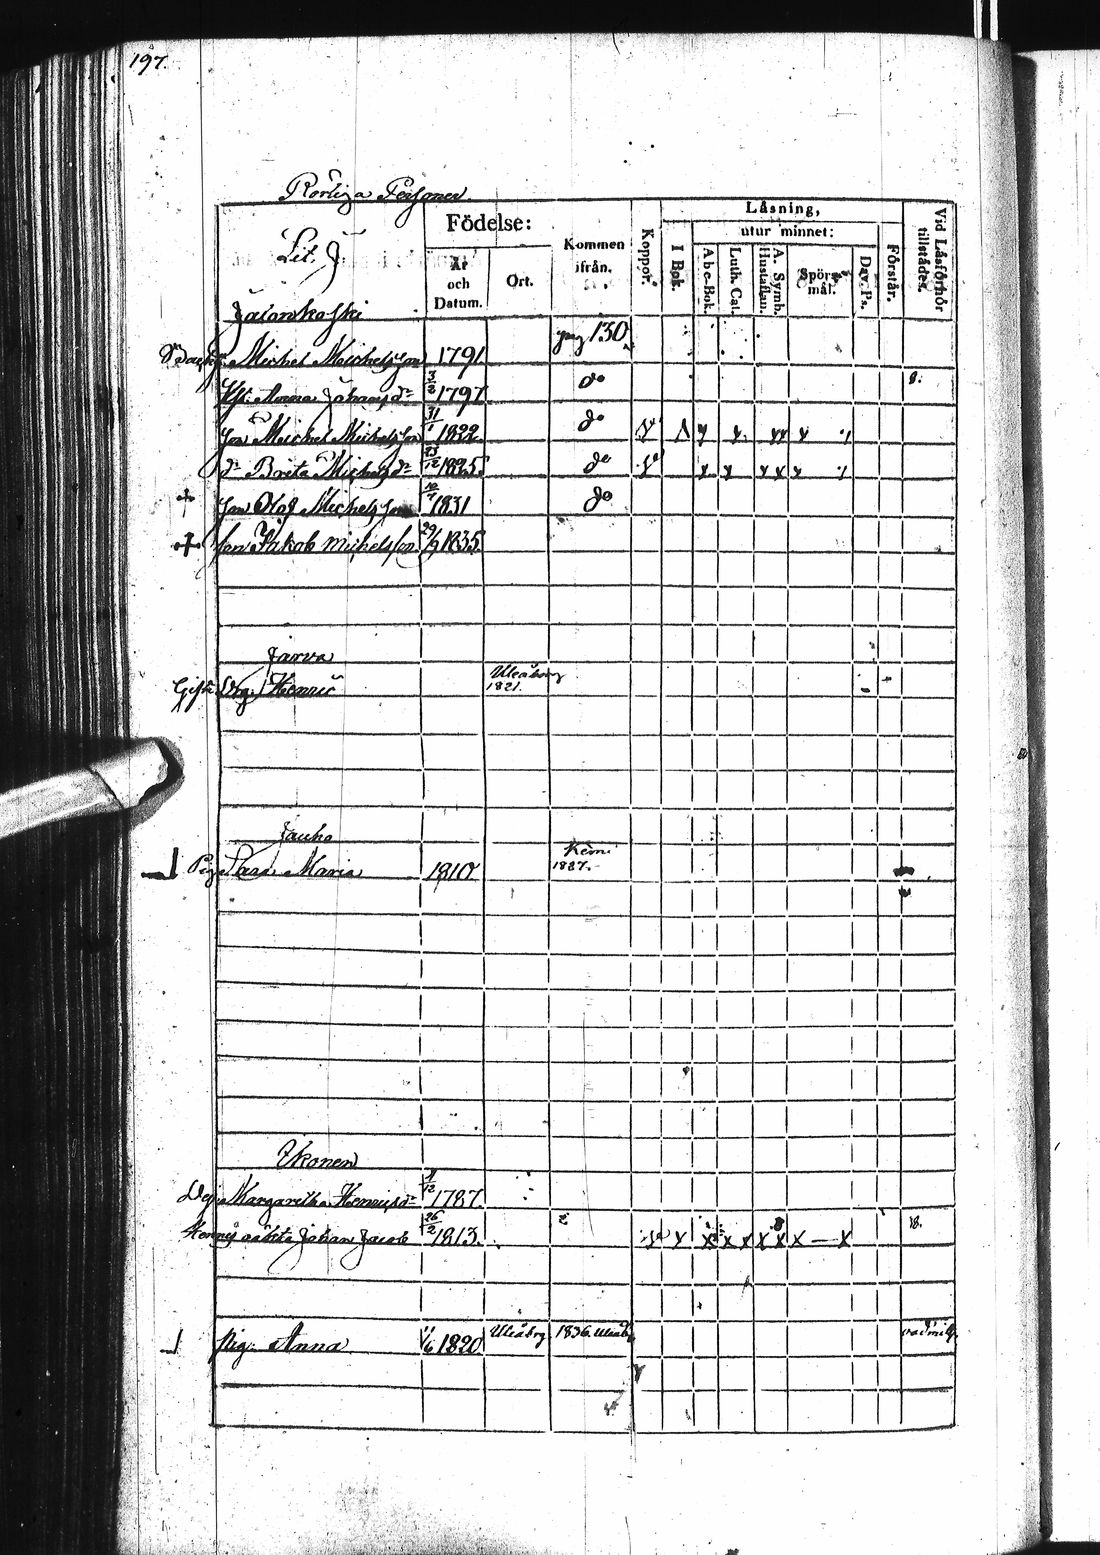 197.
Rörliga Personer
Lit. J
Födelse:
År och Datum.
Ort.
Kommen ifrån.
Koppor.
Läsning,
I Bok.
utur minnet:
Abc-Bok.
Luth. Cat.
A. Symb. Hustaflan.
Spörsmål.
Dav. Ps.
Förstår.
Vid Läsförhör tillstädes.
Jalonkoski
Michel Michelsson 1791 pag 130
Hst. Anna Johansdr 3/2 1797 do 8.
Son Michel Michelsson 31/1 1822 do
dr Brita Michelsdr 23/12 1825 do
+ Son Olof Michelsson 10/7 1831 do
+ Son Jakob Michelsson 29/9 1835
Jarva
Gift Drg. Henric Uleåborg 1821.
Jauho
Pig. Maria 1810 Kemi 1837.
Ukonen
Margaretha Henricsdr 1/12 1787.
Hennes oäkta Johan Jacob 26/2 1813. x x x x x x x — x 18.
Pig. Anna 11/6 1820 Uleåborg 1836. Uleåbg